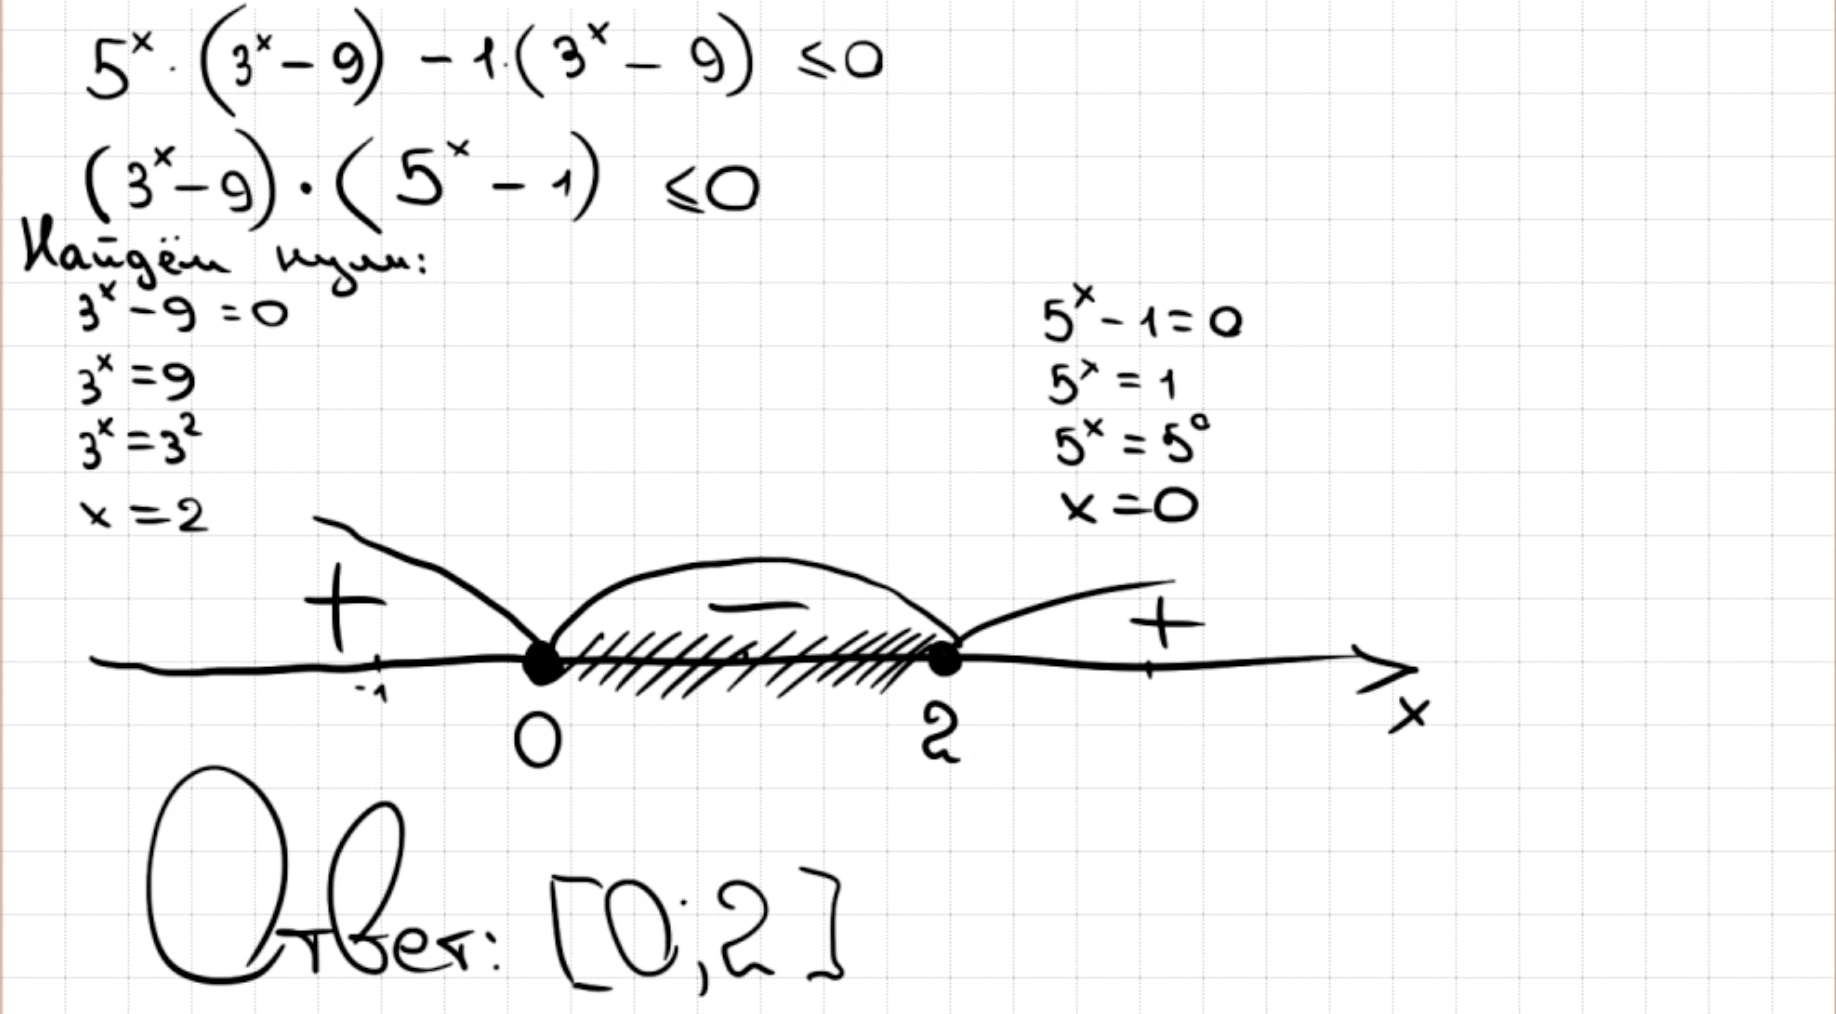 5ˣ · (3ˣ – 9) – 1·(3ˣ – 9) ⩽ 0
(3ˣ – 9) · (5ˣ – 1) ⩽ 0
Найдём нули:
3ˣ – 9 = 0
3ˣ = 9
3ˣ = 3²
x = 2
5ˣ – 1 = 0
5ˣ = 1
5ˣ = 5⁰
x = 0
+ – +
-1 0 2 x
Ответ: [0;2]